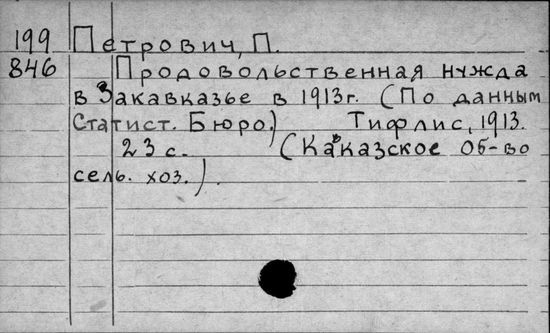 199 Петрович, П.
846 Продовольственная нужда
в Закавказье в 1913г. (По данным
Статист. Бюро.) Тифлис, 1913.
23 с. (Кавказское Об-во
сель. хоз.).